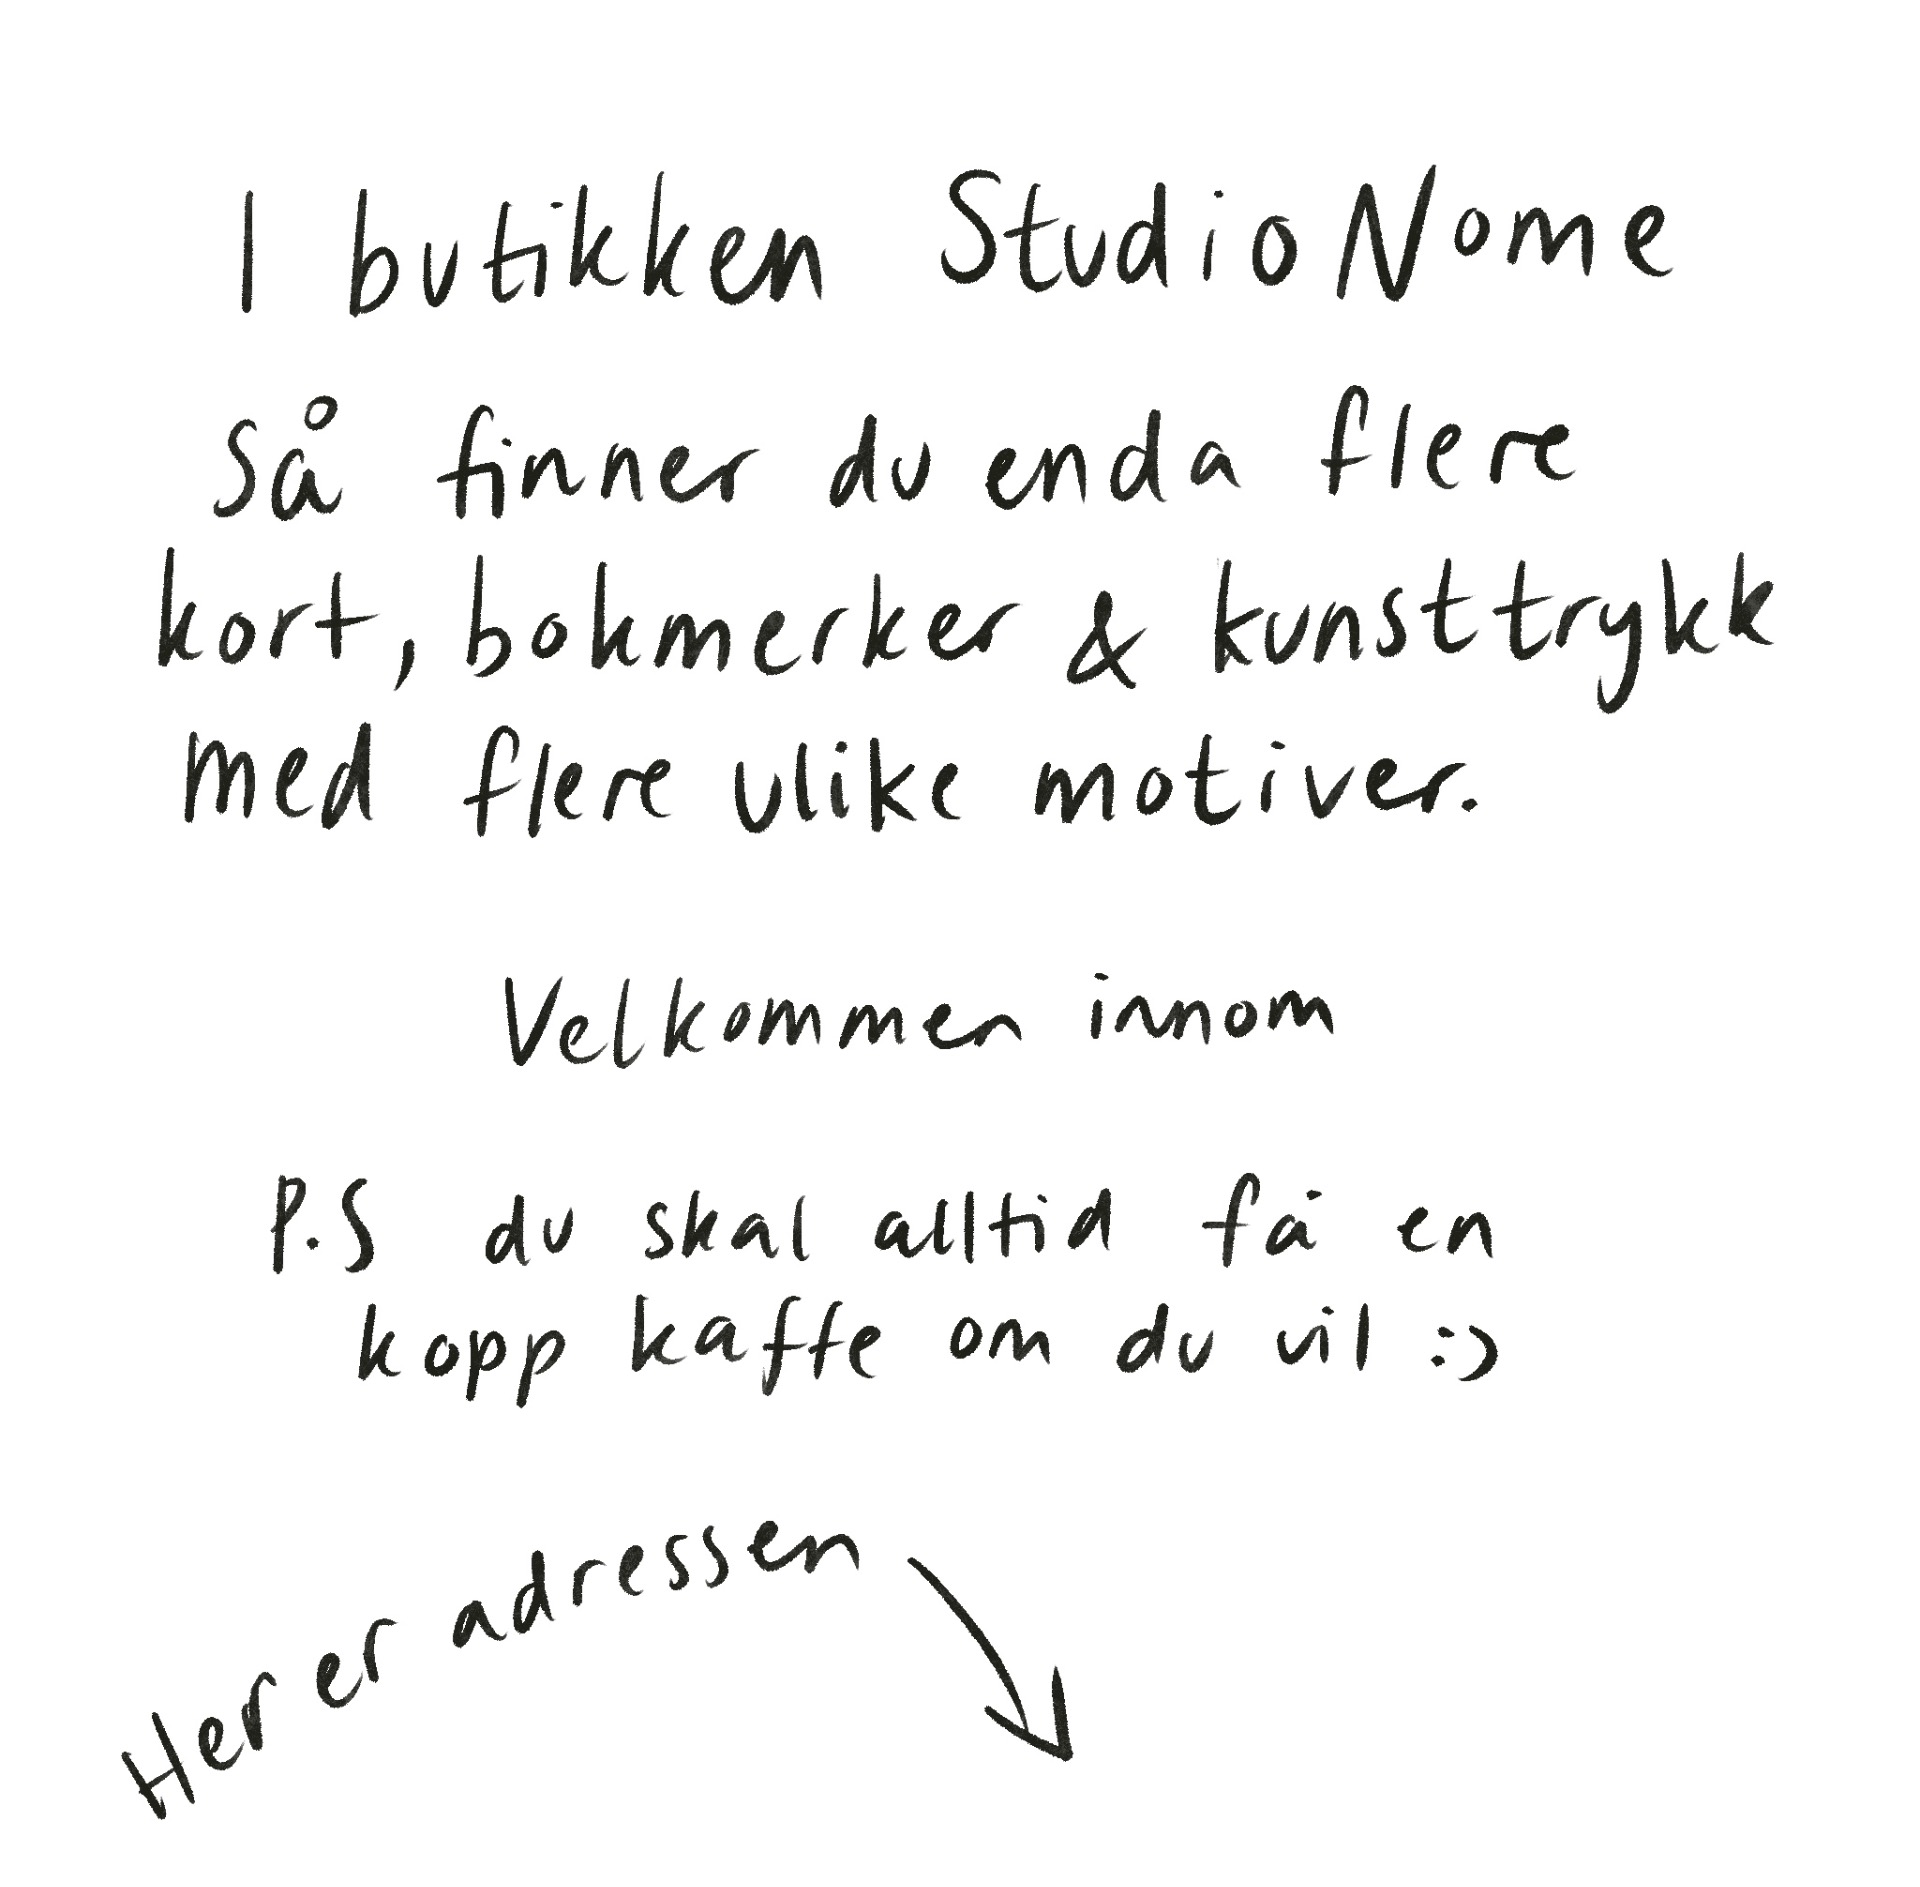 I butikken Studio Nome
så finner du enda flere
kort, bokmerker & kunsttrykk
med flere ulike motiver.
Velkommen innom
P.S du skal alltid få en
kopp kaffe om du vil :)
Her er adressen